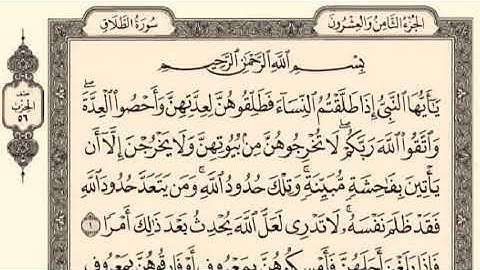 الجزء الثامن والعشرون
سورة الطلاق
نصف
الحزب
٥٦
بِسْمِ ٱللَّهِ ٱلرَّحْمَٰنِ ٱلرَّحِيمِ
يَٰٓأَيُّهَا ٱلنَّبِيُّ إِذَا طَلَّقْتُمُ ٱلنِّسَآءَ فَطَلِّقُوهُنَّ لِعِدَّتِهِنَّ وَأَحْصُوا۟ ٱلْعِدَّةَ ۖ
وَٱتَّقُوا۟ ٱللَّهَ رَبَّكُمْ ۖ لَا تُخْرِجُوهُنَّ مِنۢ بُيُوتِهِنَّ وَلَا يَخْرُجْنَ إِلَّآ أَن
يَأْتِينَ بِفَٰحِشَةٍ مُّبَيِّنَةٍ ۚ وَتِلْكَ حُدُودُ ٱللَّهِ ۚ وَمَن يَتَعَدَّ حُدُودَ ٱللَّهِ
فَقَدْ ظَلَمَ نَفْسَهُۥ ۚ لَا تَدْرِى لَعَلَّ ٱللَّهَ يُحْدِثُ بَعْدَ ذَٰلِكَ أَمْرًا ١
فَإِذَا بَلَغْنَ أَجَلَهُنَّ فَأَمْسِكُوهُنَّ بِمَعْرُوفٍ أَوْ فَارِقُوهُنَّ بِمَعْرُوفٍ